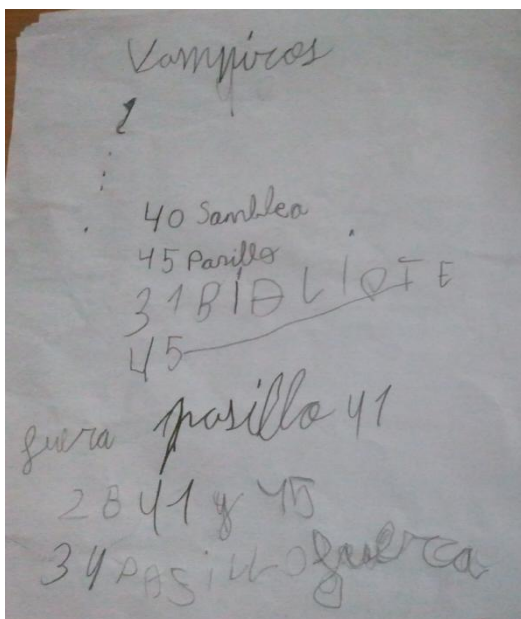 Vampiros
1
40 Samblea
45 Pasillo
31 BIBLIOTE
45
fuera pasillo 41
28 41 y 45
34 PASILLO fuerca